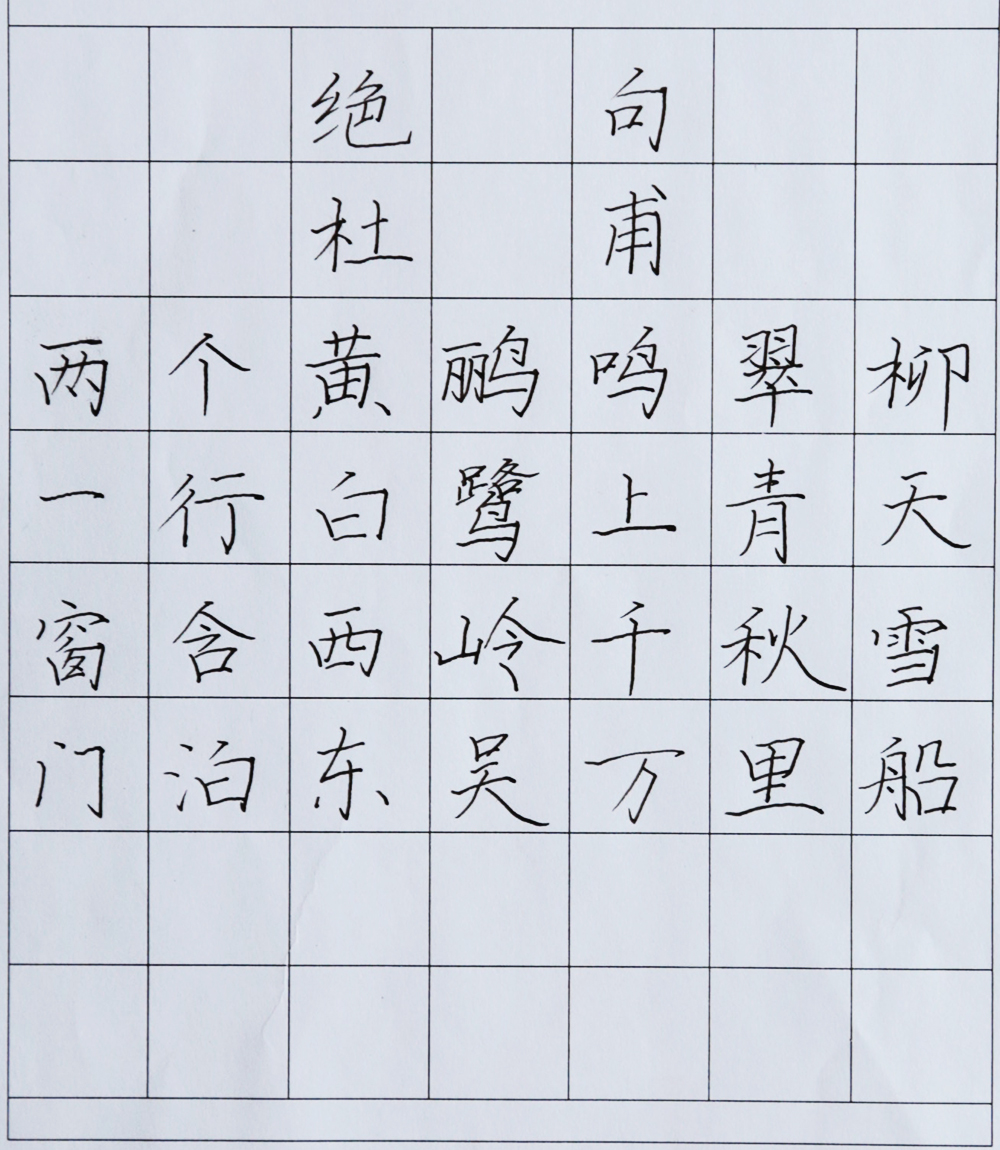 绝句
杜甫
两个黄鹂鸣翠柳
一行白鹭上青天
窗含西岭千秋雪
门泊东吴万里船